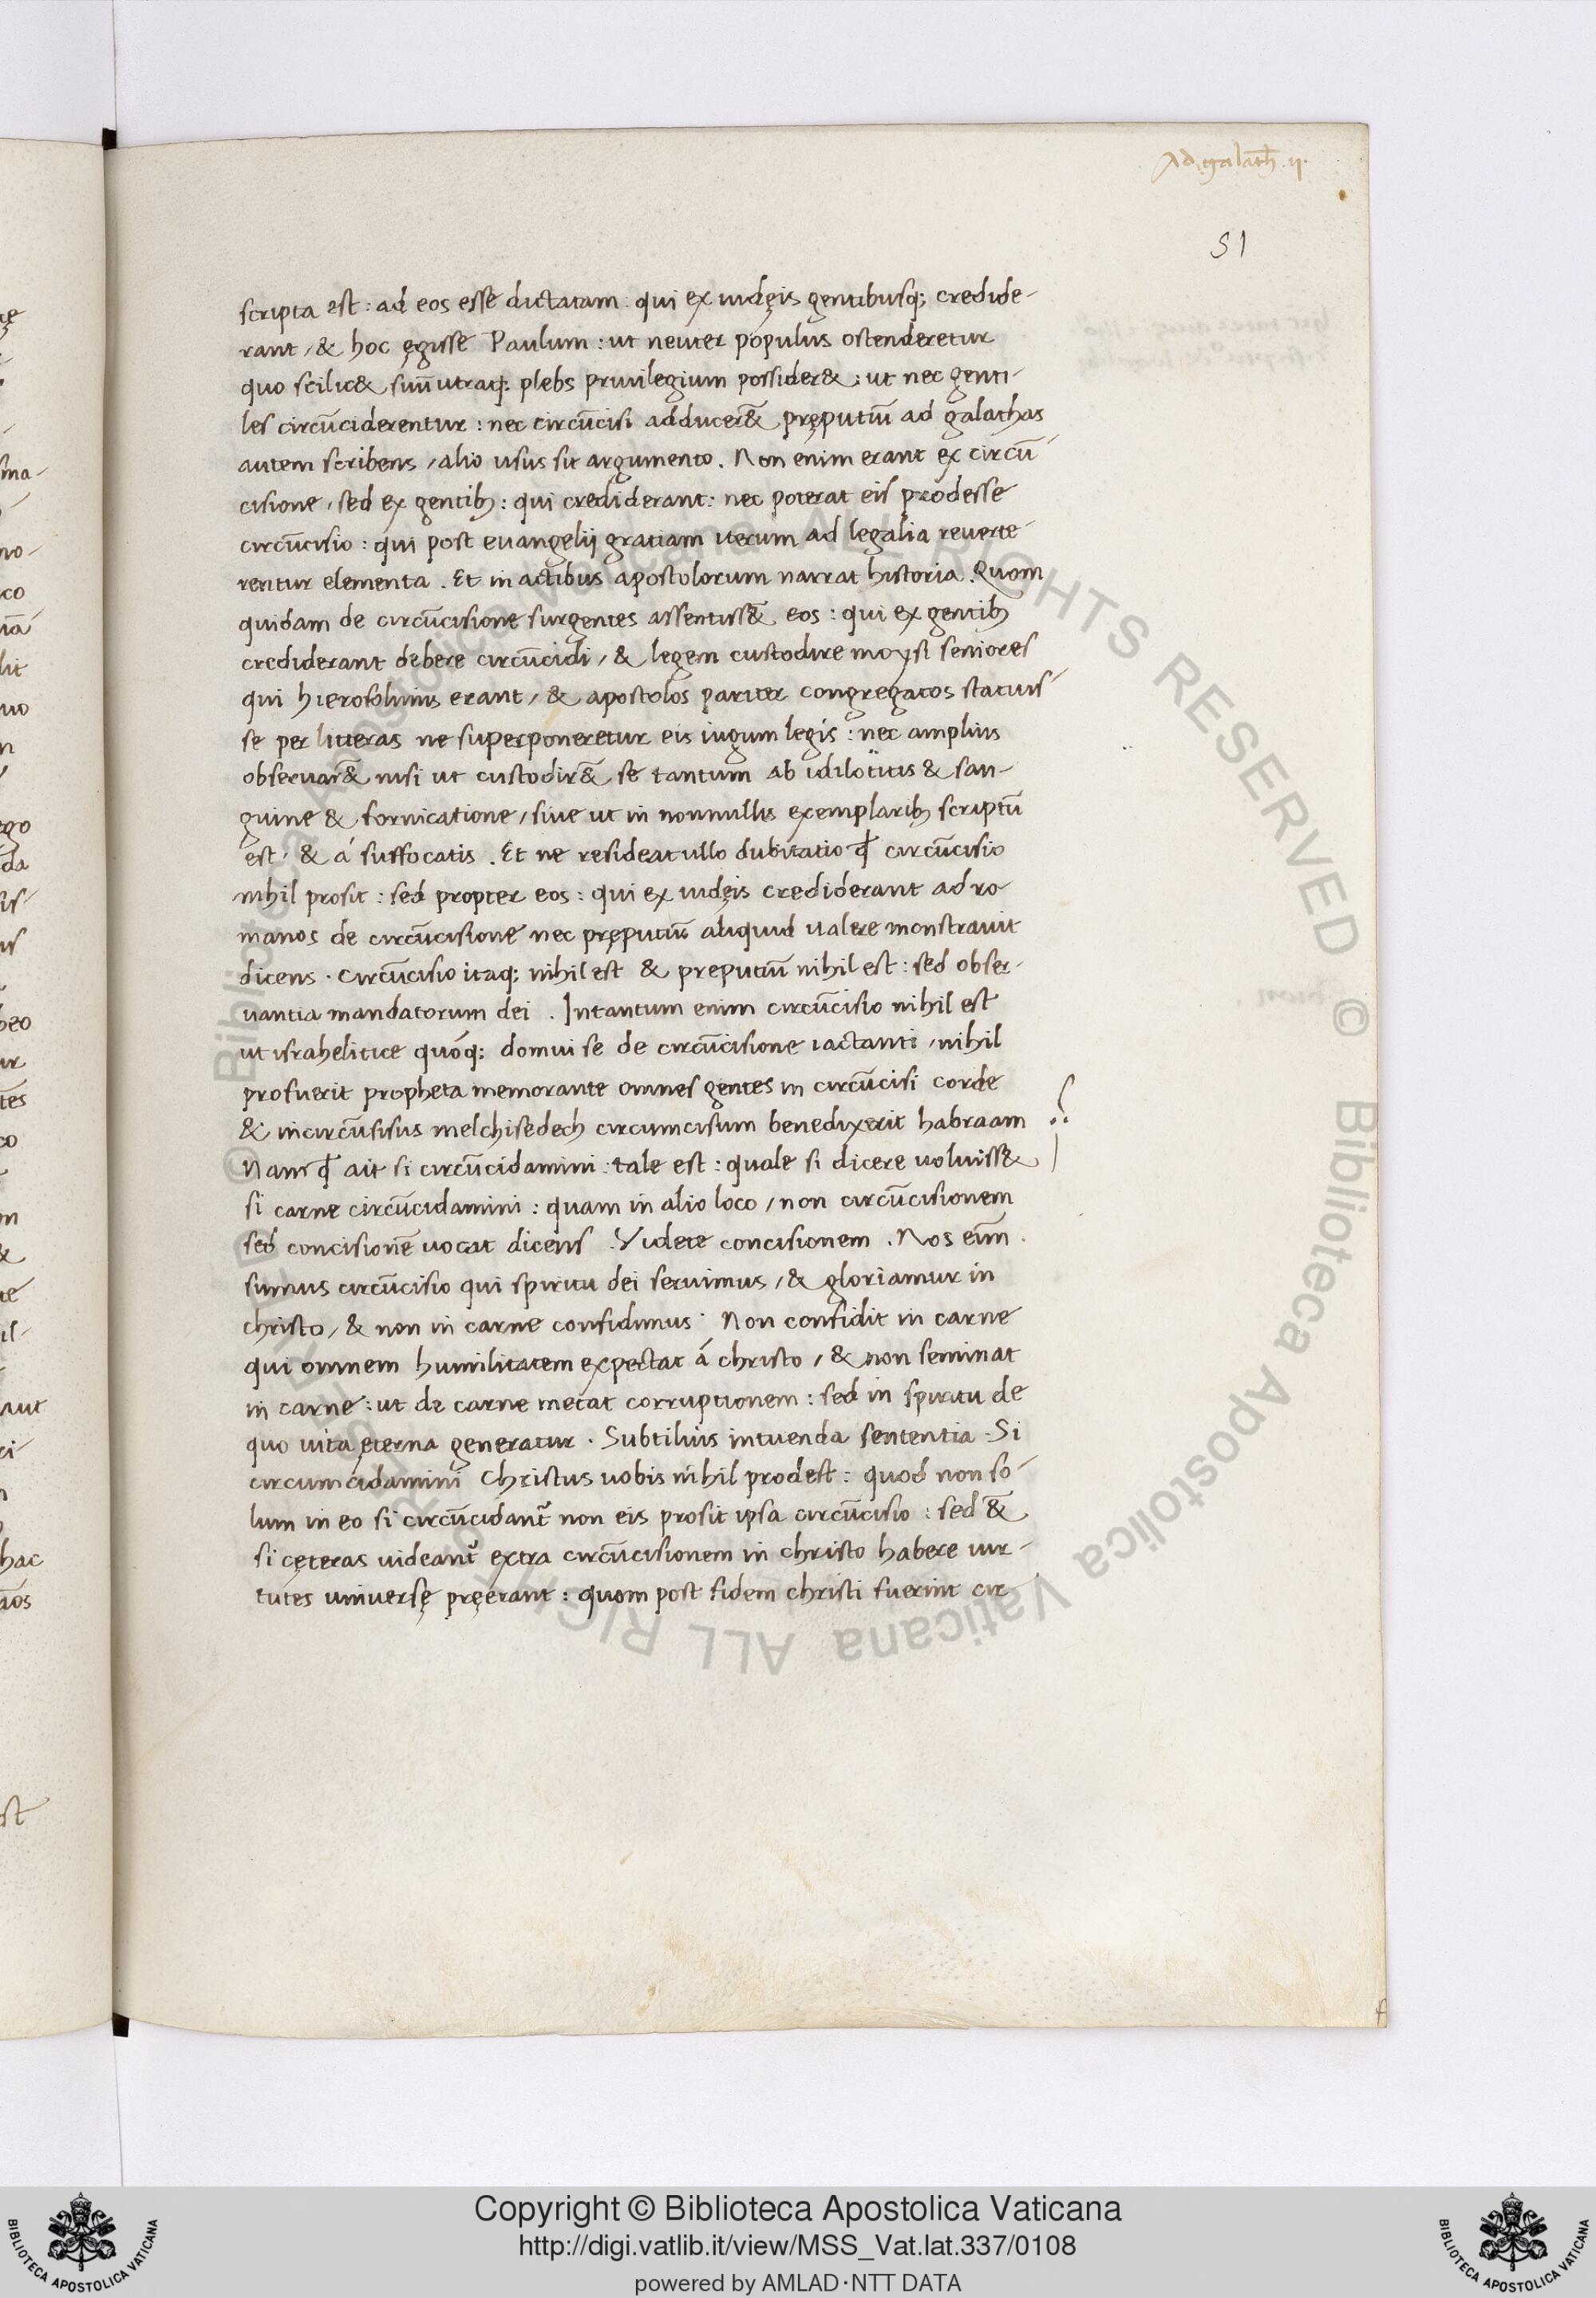 Ad galath̄. ii.
51
scripta est : ad eos esse dictatam : qui ex iudęis gentibusq; credide-
rant, & hoc ęgisse Paulum : ut neuter populus ostenderetur
quo scilic& siuū utraq; plebs priuilegium possider& : ut nec genti-
les circūciderentur : nec circūcisi adducer&̄ pręputiū ad galathas
autem scribens, alio usus sit argumento. Non enim erant ex circū
cisione, sed ex gentib; : qui crediderant : nec poterat eis prodesse
circūcisio : qui post euangelij gratiam iterum ad legalia reuerte-
rentur elementa. Et in actibus apostolorum narrat historia. Quom
quidam de circūcisione surgentes assentiss&̄ eos : qui ex gentib;
crediderant debere circūcidi, & legem custodire moysi seniores
qui hierosolimis erant, & apostolos pariter congregatos statuis-
se per litteras ne superponeretur eis iugum legis : nec amplius
obseruar&̄ nisi ut custodir&̄ se tantum ab idilotitis & san-
guine & fornicatione, siue ut in nonnullis exemplarib; scriptū
est, & á suffocatis. Et ne resideat ullo dubitatio ꝙ circūcisio
nihil prosit : sed propter eos : qui ex iudęis crediderant ad ro-
manos de circūcisione nec pręputiū aliquid ualere monstrauit
dicens. circūcisio itaq; nihil est & preputiū nihil est : sed obser-
uantia mandatorum dei. Intantum enim circūcisio nihil est
ut israhelitice quóq; domui se de circūcisione iactanti, nihil
profuerit propheta memorante omnes gentes in circūcisi corde
& incircūsisus melchisedech circumcisum benedixerit habraam
Nam ꝙ ait si circūcidamini : tale est : quale si dicere uoluiss&
si carne circūcidamini : quam in alio loco, non circūcisionem
sed concisionē uocat dicens. Videte concisionem. Nos eiṁ
sumus circūcisio qui spiritu dei seruimus, & gloriamur in
christo, & non in carne confidimus. Non confidit in carne
qui omnem humilitatem expectat á christo, & non seminat
in carne : ut de carne metat corruptionem : sed in spiritu de
quo uita ęterna generatur. Subtilius intuenda sententia. Si
circumcidamini Christus uobis nihil prodest : quod non so-
lum in eo si circūcidant᷑ non eis prosit ipsa circūcisio : sed &̄
si cęteras uideant᷑ extra circūcisionem in christo habere uir-
tutes uniuersę pręerant : quom post fidem christi fuerint cir
Copyright © Biblioteca Apostolica Vaticana
http://digi.vatlib.it/view/MSS_Vat.lat.337/0108
powered by AMLAD·NTT DATA